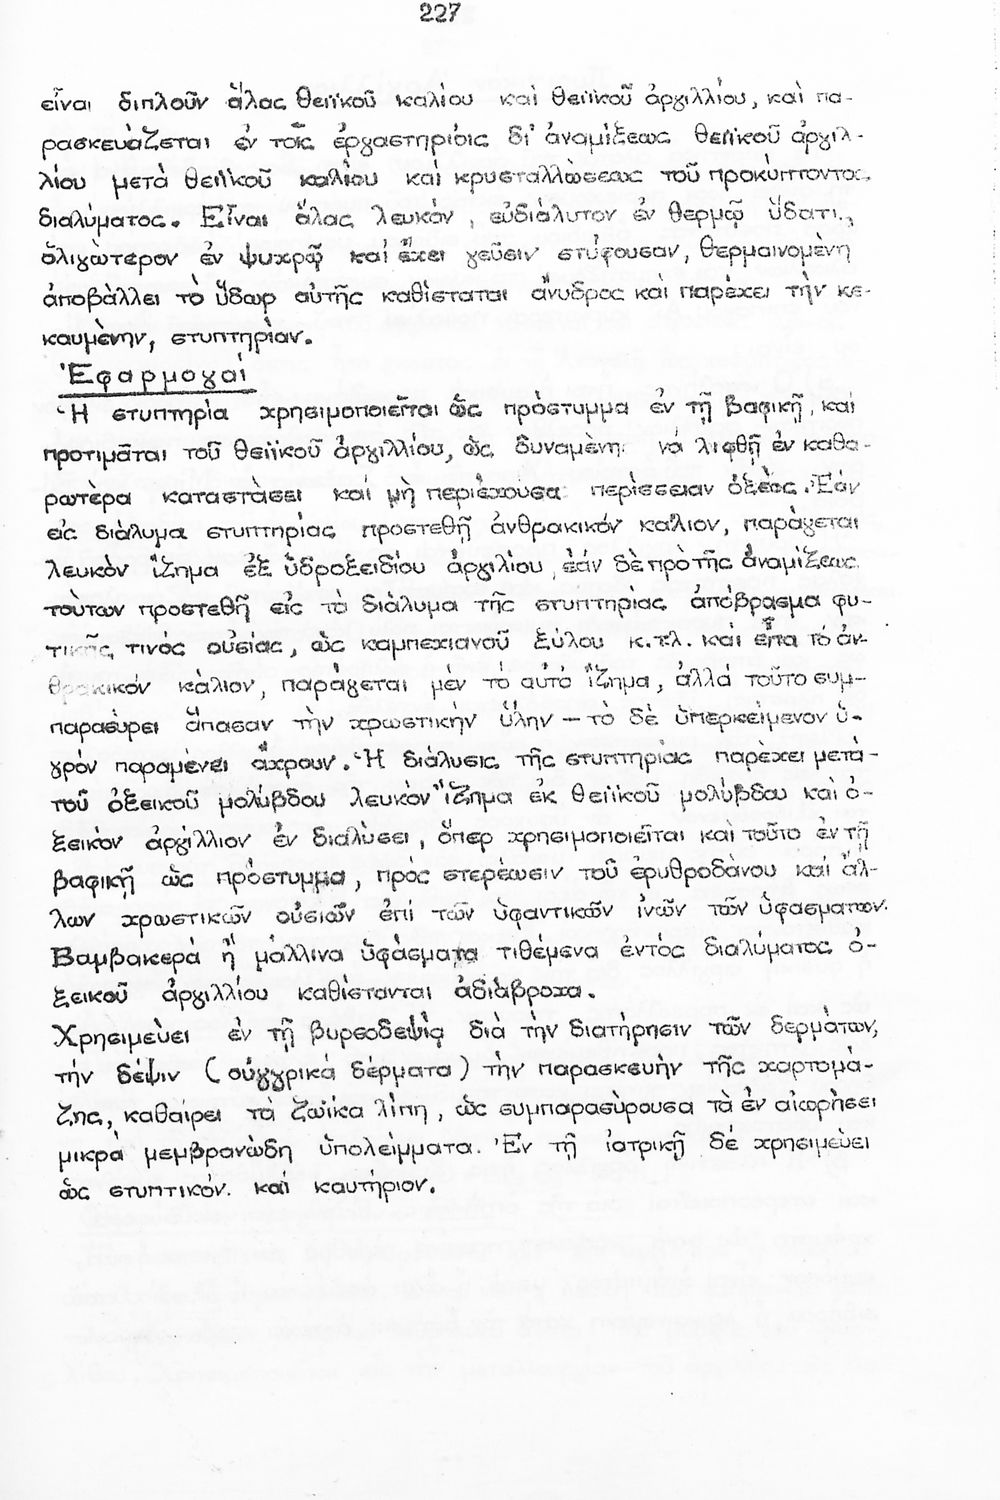 227
εἶναι διπλοῦν ἅλας θειϊκοῦ καλίου καὶ θειϊκοῦ ἀργιλλίου, καὶ πα-
ρασκευάζεται ἐν τοῖς ἐργαστηρίοις δι' ἀναμίξεως θειϊκοῦ ἀργιλ-
λίου μετὰ θειϊκοῦ καλίου καὶ κρυσταλλώσεως τοῦ προκύπτοντος
διαλύματος. Εἶναι ἅλας λευκόν, εὐδιάλυτον ἐν θερμῷ ὕδατι,
ὀλιγώτερον ἐν ψυχρῷ καὶ ἔχει γεῦσιν στύφουσαν, θερμαινομένη
ἀποβάλλει τὸ ὕδωρ αὐτῆς καθίσταται ἄνυδρος καὶ παρέχει τὴν κε-
καυμένην, στυπτηρίαν.
Ἐφαρμογαί
Ἡ στυπτηρία χρησιμοποιεῖται ὡς πρόστυμμα ἐν τῇ βαφικῇ, καὶ
προτιμᾶται τοῦ θειϊκοῦ ἀργιλλίου, ὡς δυναμένη νά λιφθῇ ἐν καθα-
ρωτέρα καταστάσει καὶ μὴ περιέχουσα περίσσειαν ὀξέος. Ἐάν
εἰς διάλυμα στυπτηρίας προστεθῇ ἀνθρακικόν κάλιον, παράγεται
λευκὸν ἵζημα ἐξ ὑδροξειδίου ἀργιλίου, ἐάν δὲ πρὸ τῆς ἀναμίξεως
τούτων προστεθῇ εἰς τὸ διάλυμα τῆς στυπτηρίας ἀπόβρασμα φυ-
τικῆς τινός οὐσίας, ὡς καμπεχιανοῦ ξύλου κ.τ.λ. καὶ εἶτα τό ἀν-
θρακικόν κάλιον, παράγεται μέν τό αὐτό ἵζημα, ἀλλά τοῦτο συμ-
παρασύρει ἅπασαν τὴν χρωστικὴν ὕλην – τὸ δὲ ὑπερκείμενον ὑ-
γρόν παραμένει ἄχρουν. Ἡ διάλυσις τῆς στυπτηρίας παρέχει μετά-
τοῦ ὀξεικοῦ μολύβδου λευκόν ἵζημα ἐκ θειϊκοῦ μολύβδου καὶ ὀ-
ξεικόν ἀργίλλιον ἐν διαλύσει, ὅπερ χρησιμοποιεῖται καὶ τοῦτο ἐν τῇ
βαφικῇ ὡς πρόστυμμα, πρός στερέωσιν τοῦ ἐρυθροδάνου καὶ ἄλ-
λων χρωστικῶν οὐσιῶν ἐπί τῶν ὑφαντικῶν ἰνῶν τῶν ὑφασμάτων.
Βαμβακερά ἤ μάλλινα ὑφάσματα τιθέμενα ἐντός διαλύματος ὀ-
ξεικοῦ ἀργιλλίου καθίστανται ἀδιάβροχα.
Χρησιμεύει ἐν τῇ βυρσοδεψίᾳ διά τὴν διατήρησιν τῶν δερμάτων,
τὴν δέψιν (οὑγγρικά δέρματα) τὴν παρασκευὴν τῆς χαρτομά-
ζης, καθαίρει τὰ ζωϊκα λίπη, ὡς συμπαρασύρουσα τὰ ἐν αἰωρήσει
μικρά μεμβρανώδη ὑπολείμματα. Ἐν τῇ ἰατρικῇ δέ χρησιμεύει
ὡς στυπτικόν. καὶ καυτήριον.